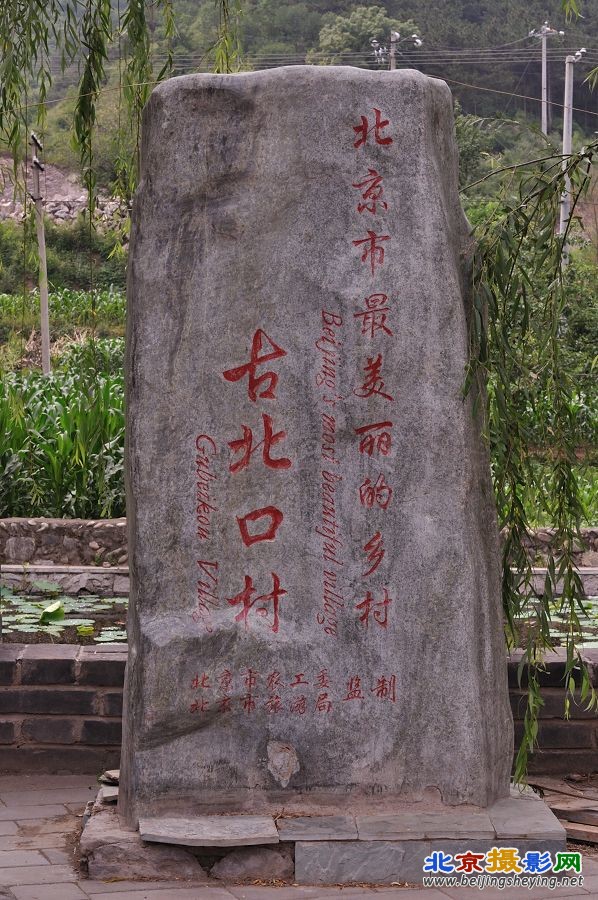 北京市最美丽的乡村
Beijing's most beautiful village
古北口村
Gubeikou Village
北京市农工委
北京市旅游局 监制
北京摄影网
www.beijingsheying.net